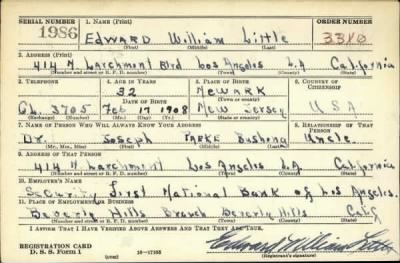 SERIAL NUMBER 1. NAME (Print) ORDER NUMBER
1986 EDWARD William Little 3380
(First) (Middle) (Last)
2. ADDRESS (Print)
414 N Larchmont Blvd Los Angeles LA California
(Number and street or R. F. D. number) (Town) (County) (State)
3. TELEPHONE 4. AGE IN YEARS 5. PLACE OF BIRTH 6. COUNTRY OF CITIZENSHIP
32 NEWARK
DATE OF BIRTH (Town or county)
GL. 3705 Feb 17 1908 New Jersey USA
(Exchange) (Number) (Mo.) (Day) (Yr.) (State or country)
7. NAME OF PERSON WHO WILL ALWAYS KNOW YOUR ADDRESS 8. RELATIONSHIP OF THAT PERSON
Dr. Joseph PARKE Bushong Uncle
(Mr., Mrs., Miss) (First) (Middle) (Last)
9. ADDRESS OF THAT PERSON
414 N Larchmont Los Angeles LA California
(Number and street or R. F. D. number) (Town) (County) (State)
10. EMPLOYER'S NAME
Security First National Bank of Los Angeles.
11. PLACE OF EMPLOYMENT OR BUSINESS
Beverly Hills Branch Beverly Hills Calif
(Number and street or R. F. D. number) (Town) (County) (State)
I AFFIRM THAT I HAVE VERIFIED ABOVE ANSWERS AND THAT THEY ARE TRUE.
REGISTRATION CARD
D. S. S. FORM 1 (over) 16—17105 Edward William Little
(Registrant's signature)